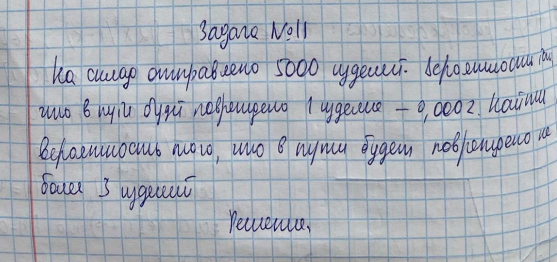 Задача №11
На склад отправлено 5000 изделий. Вероятность того,
что в пути будет повреждено 1 изделие – 0,0002. Найти
вероятность того, что в пути будет повреждено не
более 3 изделий
Решение.